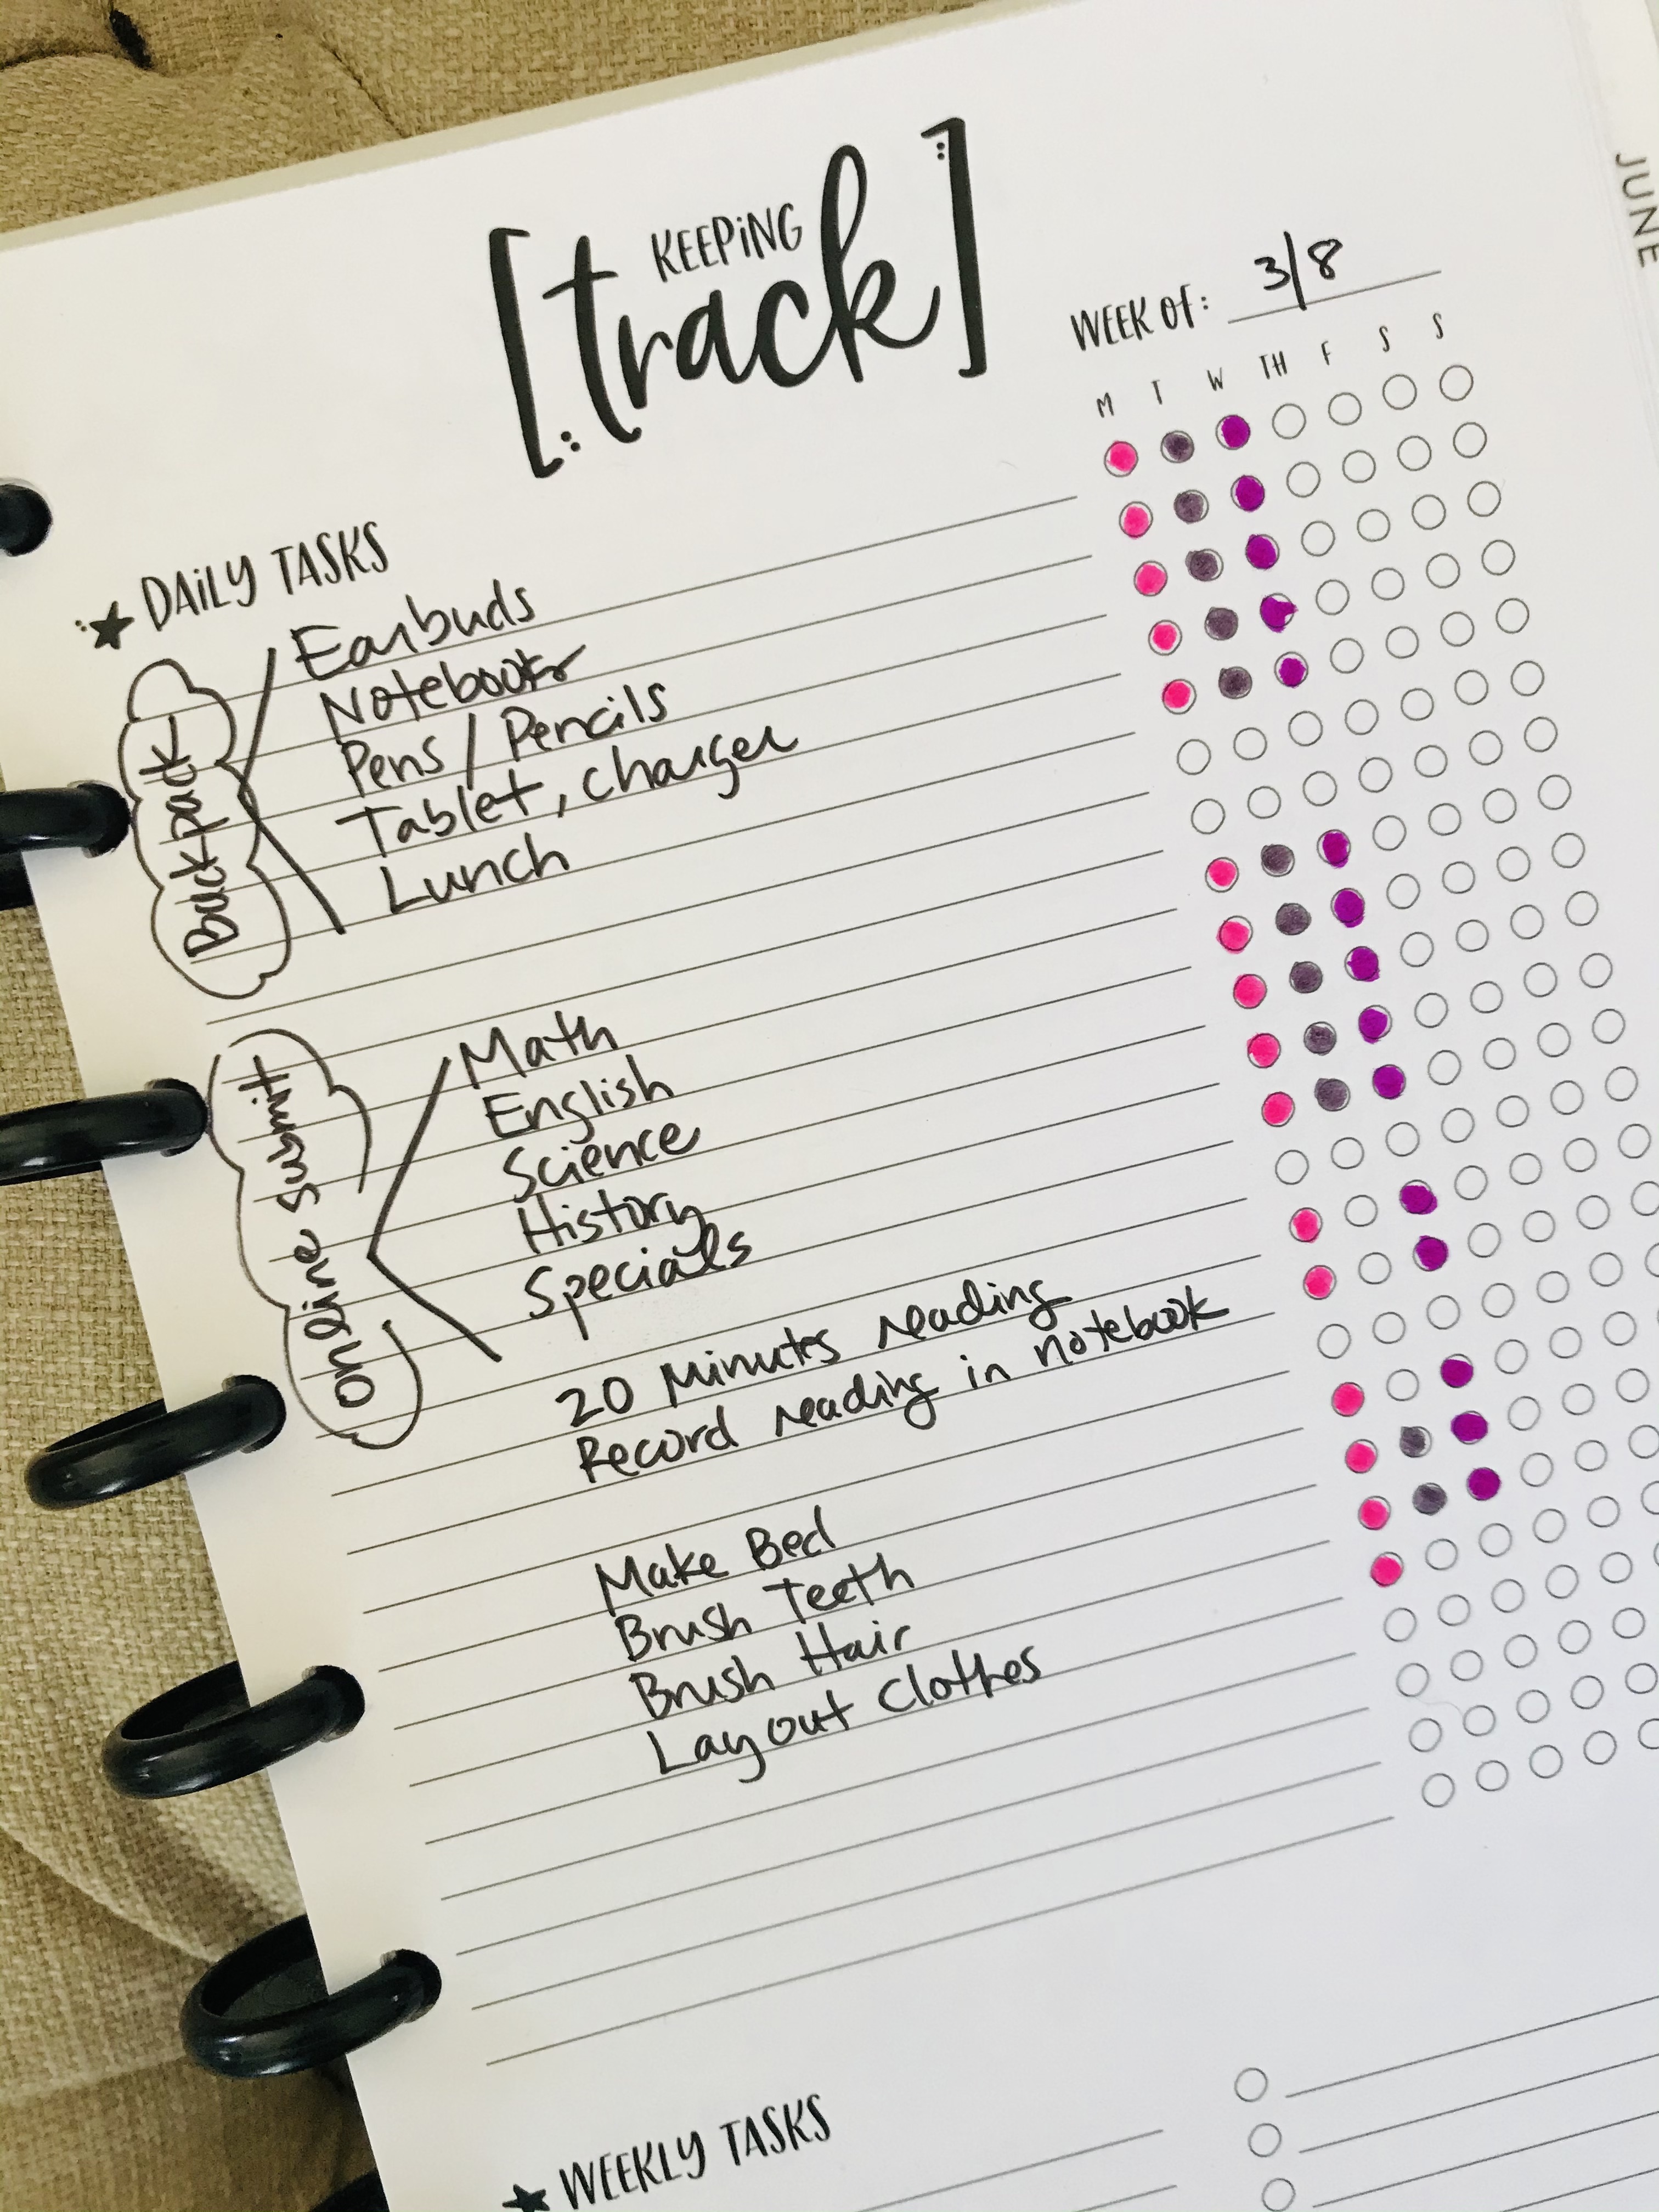 [KEEPING
track]
WEEK OF: 3/8
M T W TH F S S
JUNE
DAILY TASKS
Backpack
Earbuds
Notebooks
Pens / Pencils
Tablet, charger
Lunch
online submit
Math
English
Science
History
Specials
20 Minutes reading
Record reading in notebook
Make Bed
Brush Teeth
Brush Hair
Layout Clothes
WEEKLY TASKS